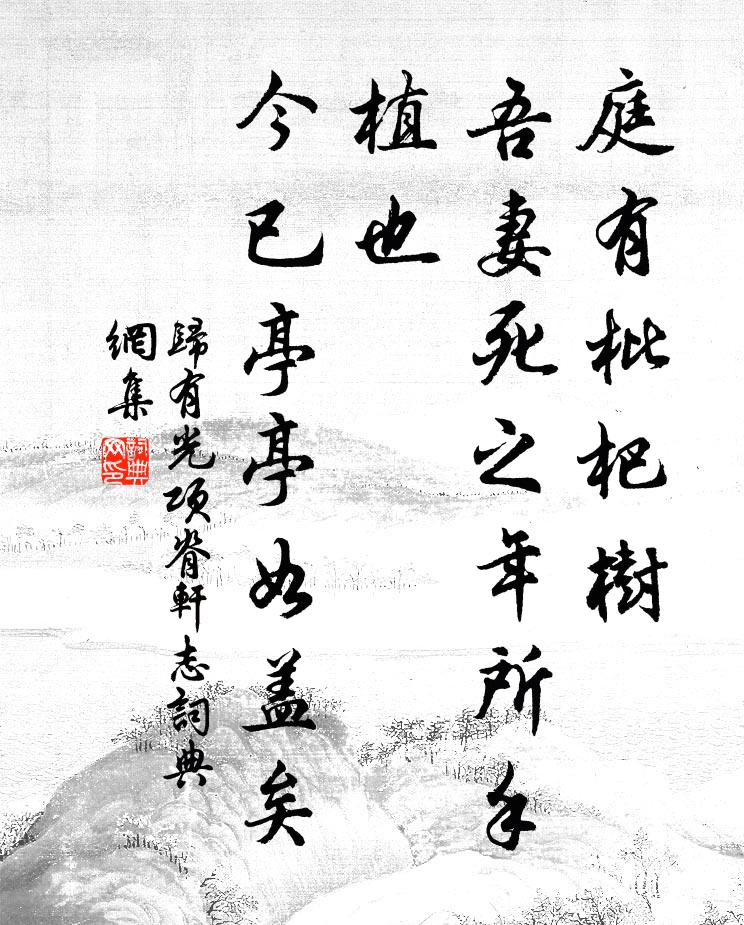 庭有枇杷樹
吾妻死之年所手
植也
今已亭亭如盖矣
歸有光項脊軒志詞典
網集
詞典
网印